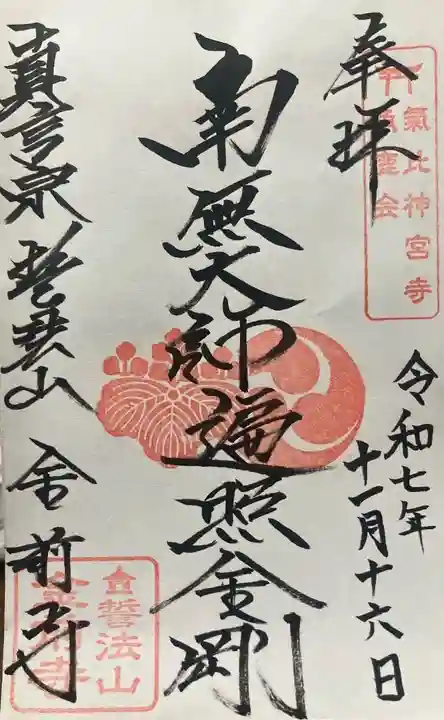 奉拝
氣比神宮寺
令和七年
十一月十六日
南無大師遍照金剛
真言宗 誓法山 金前寺
誓法山
金前寺